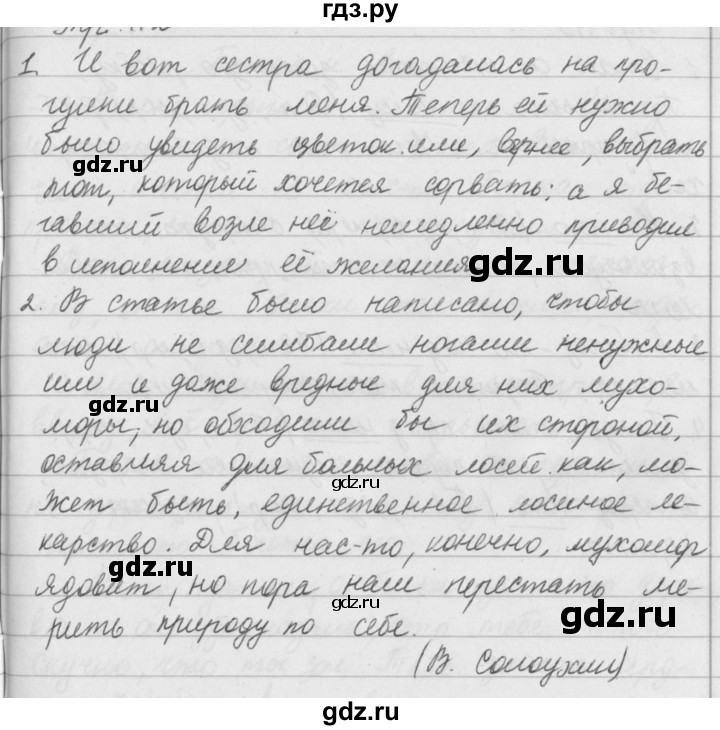 гдз.ру
1. И вот сестра догадалась на про-
гулки брать меня. Теперь ей нужно
было увидеть цветок или, вернее, выбрать
тот, который хочется сорвать: а я бе-
гавший возле неё немедленно приводил
в исполнение её желания
2. В статье было написано, чтобы
люди не сшибали ногами ненужные
им и даже вредные для них мухо-
моры, но обходили бы их стороной,
оставляя для больных лосей как, мо-
жет быть, единственное лосиное ле-
карство. Для нас-то, конечно, мухомор
ядовит, но пора нам перестать ме-
рить природу по себе.
(В. Солоухин)
gdz.ru
gdz.ru
gdz.ru
gdz.ru
gdz.ru
gdz.ru
gdz.ru
gdz.ru
гдз.ру